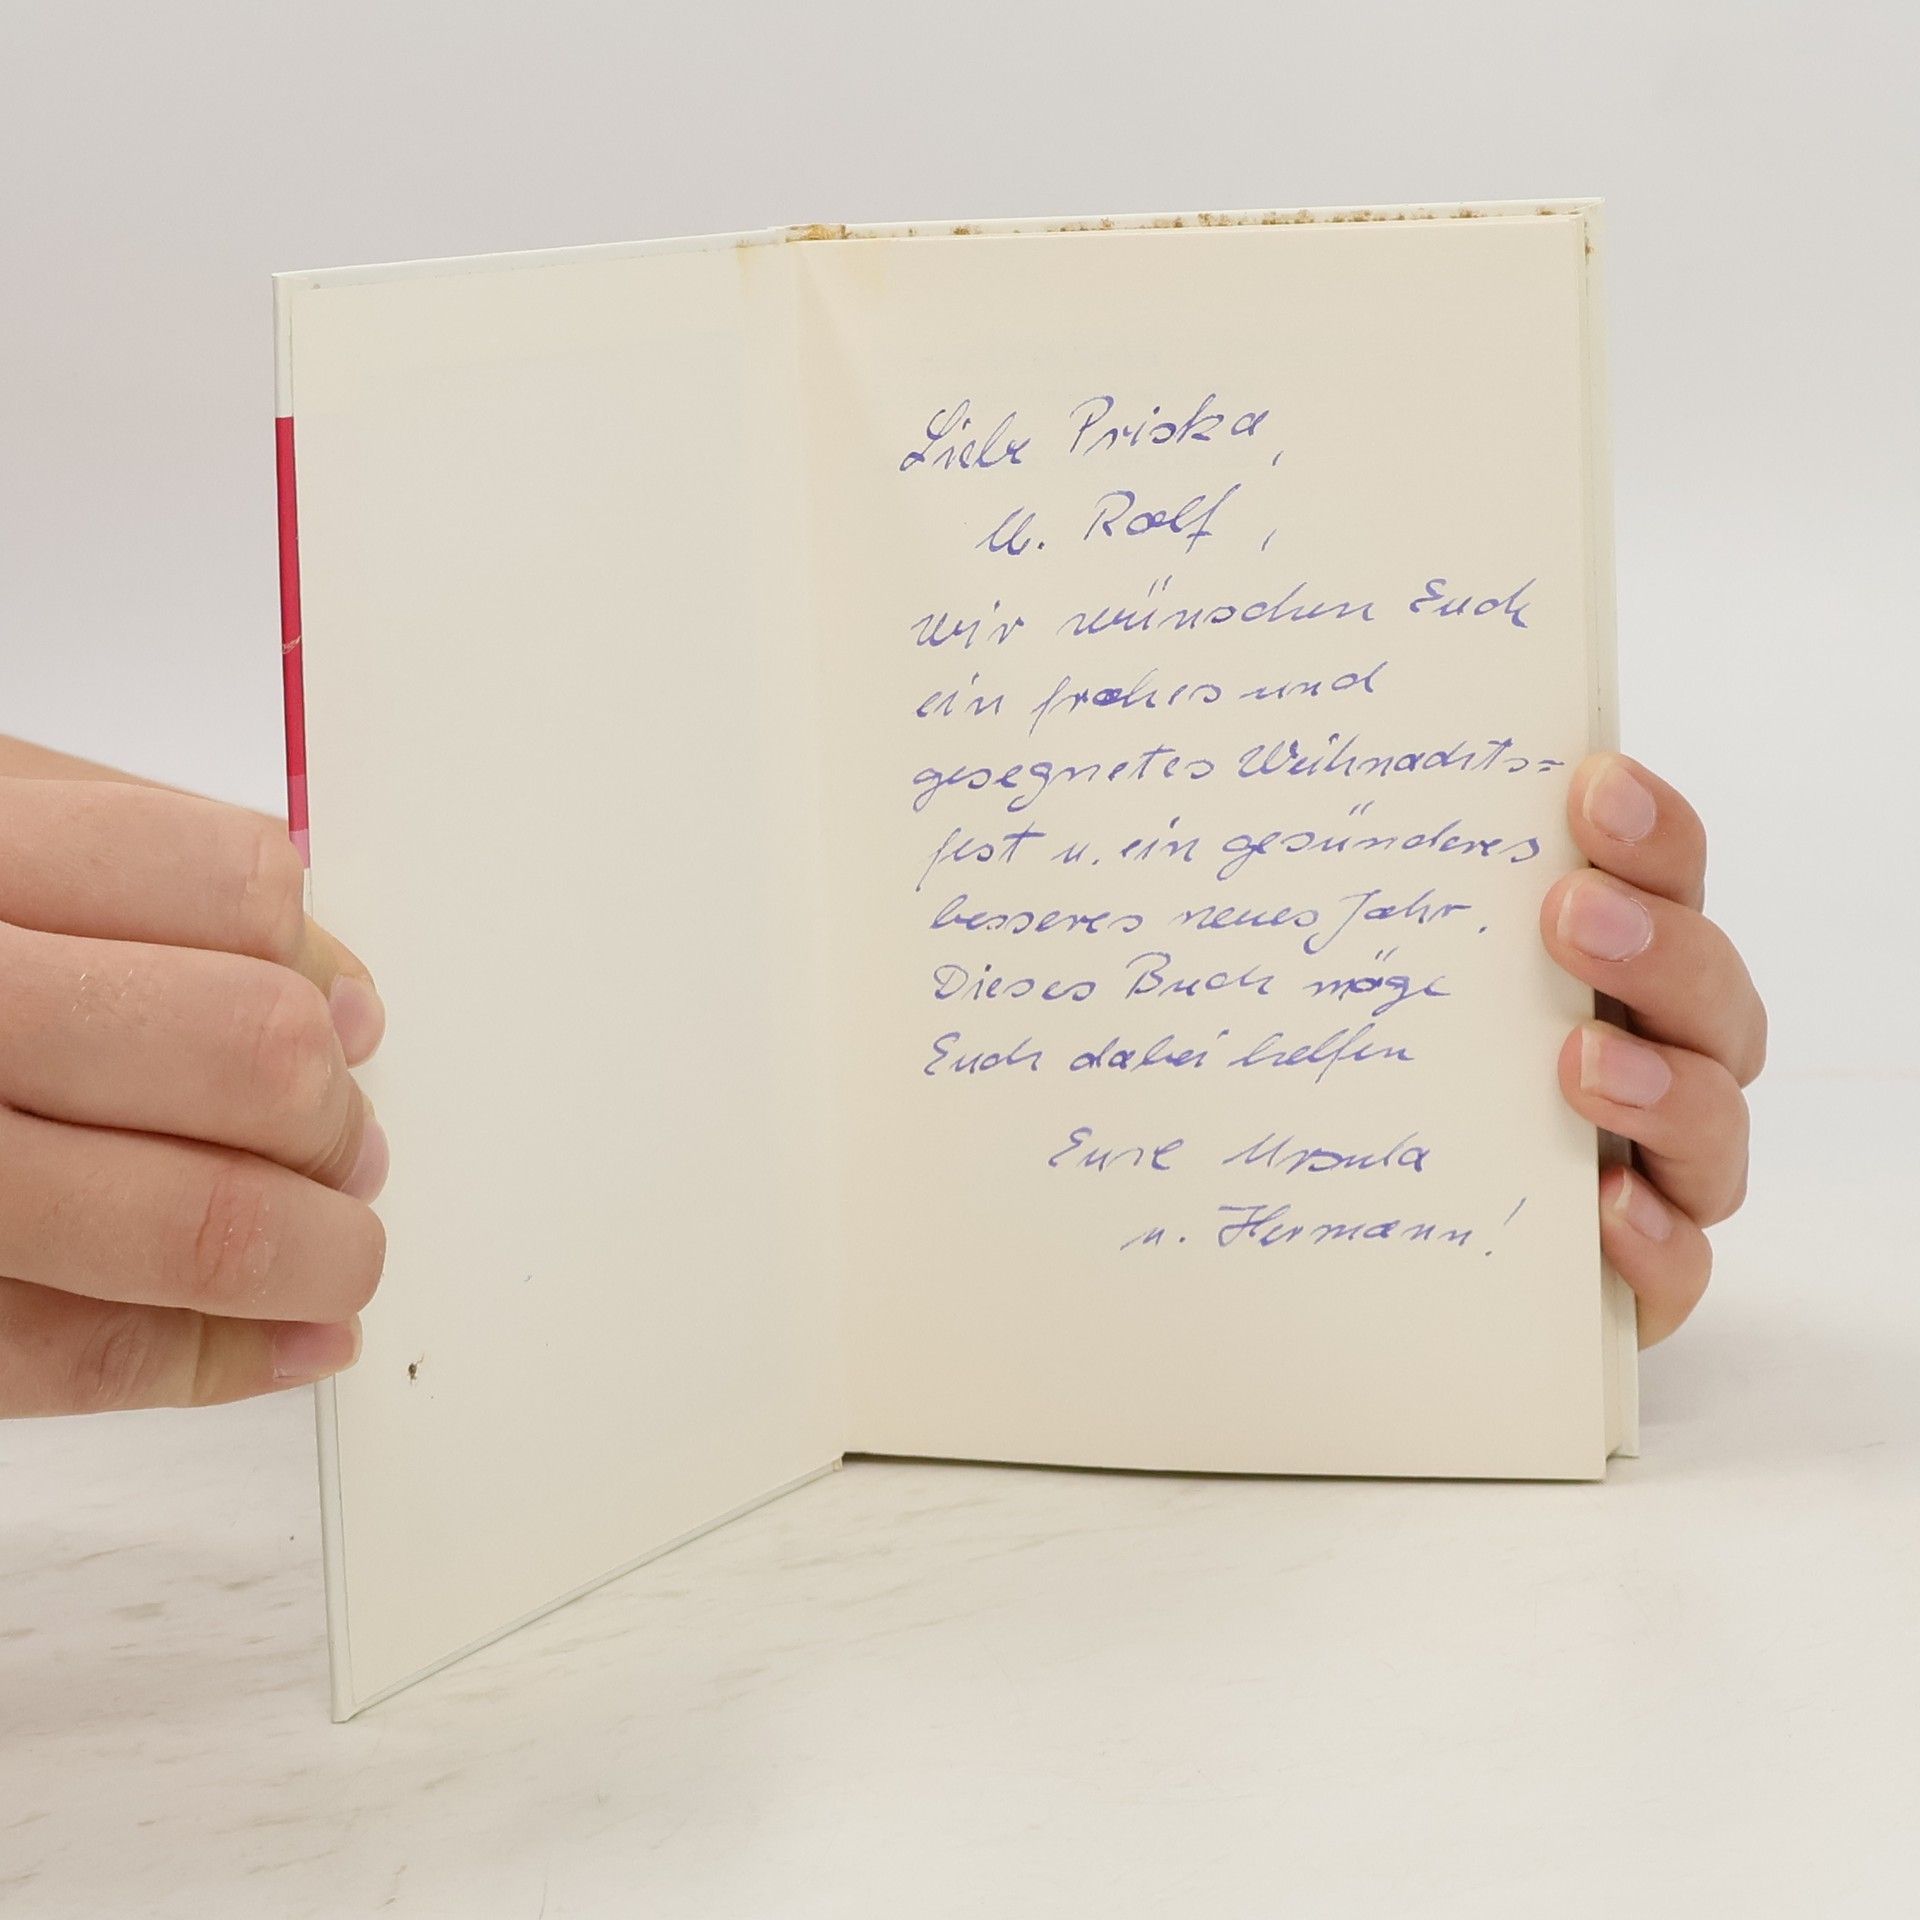 Liebe Priska,
U. Rolf,
wir wünschen Euch
ein frohes und
gesegnetes Weihnachts=
fest u. ein gesünderes
besseres neues Jahr.
Dieses Buch möge
Euch dabei helfen
Eure Ursula
u. Hermann!